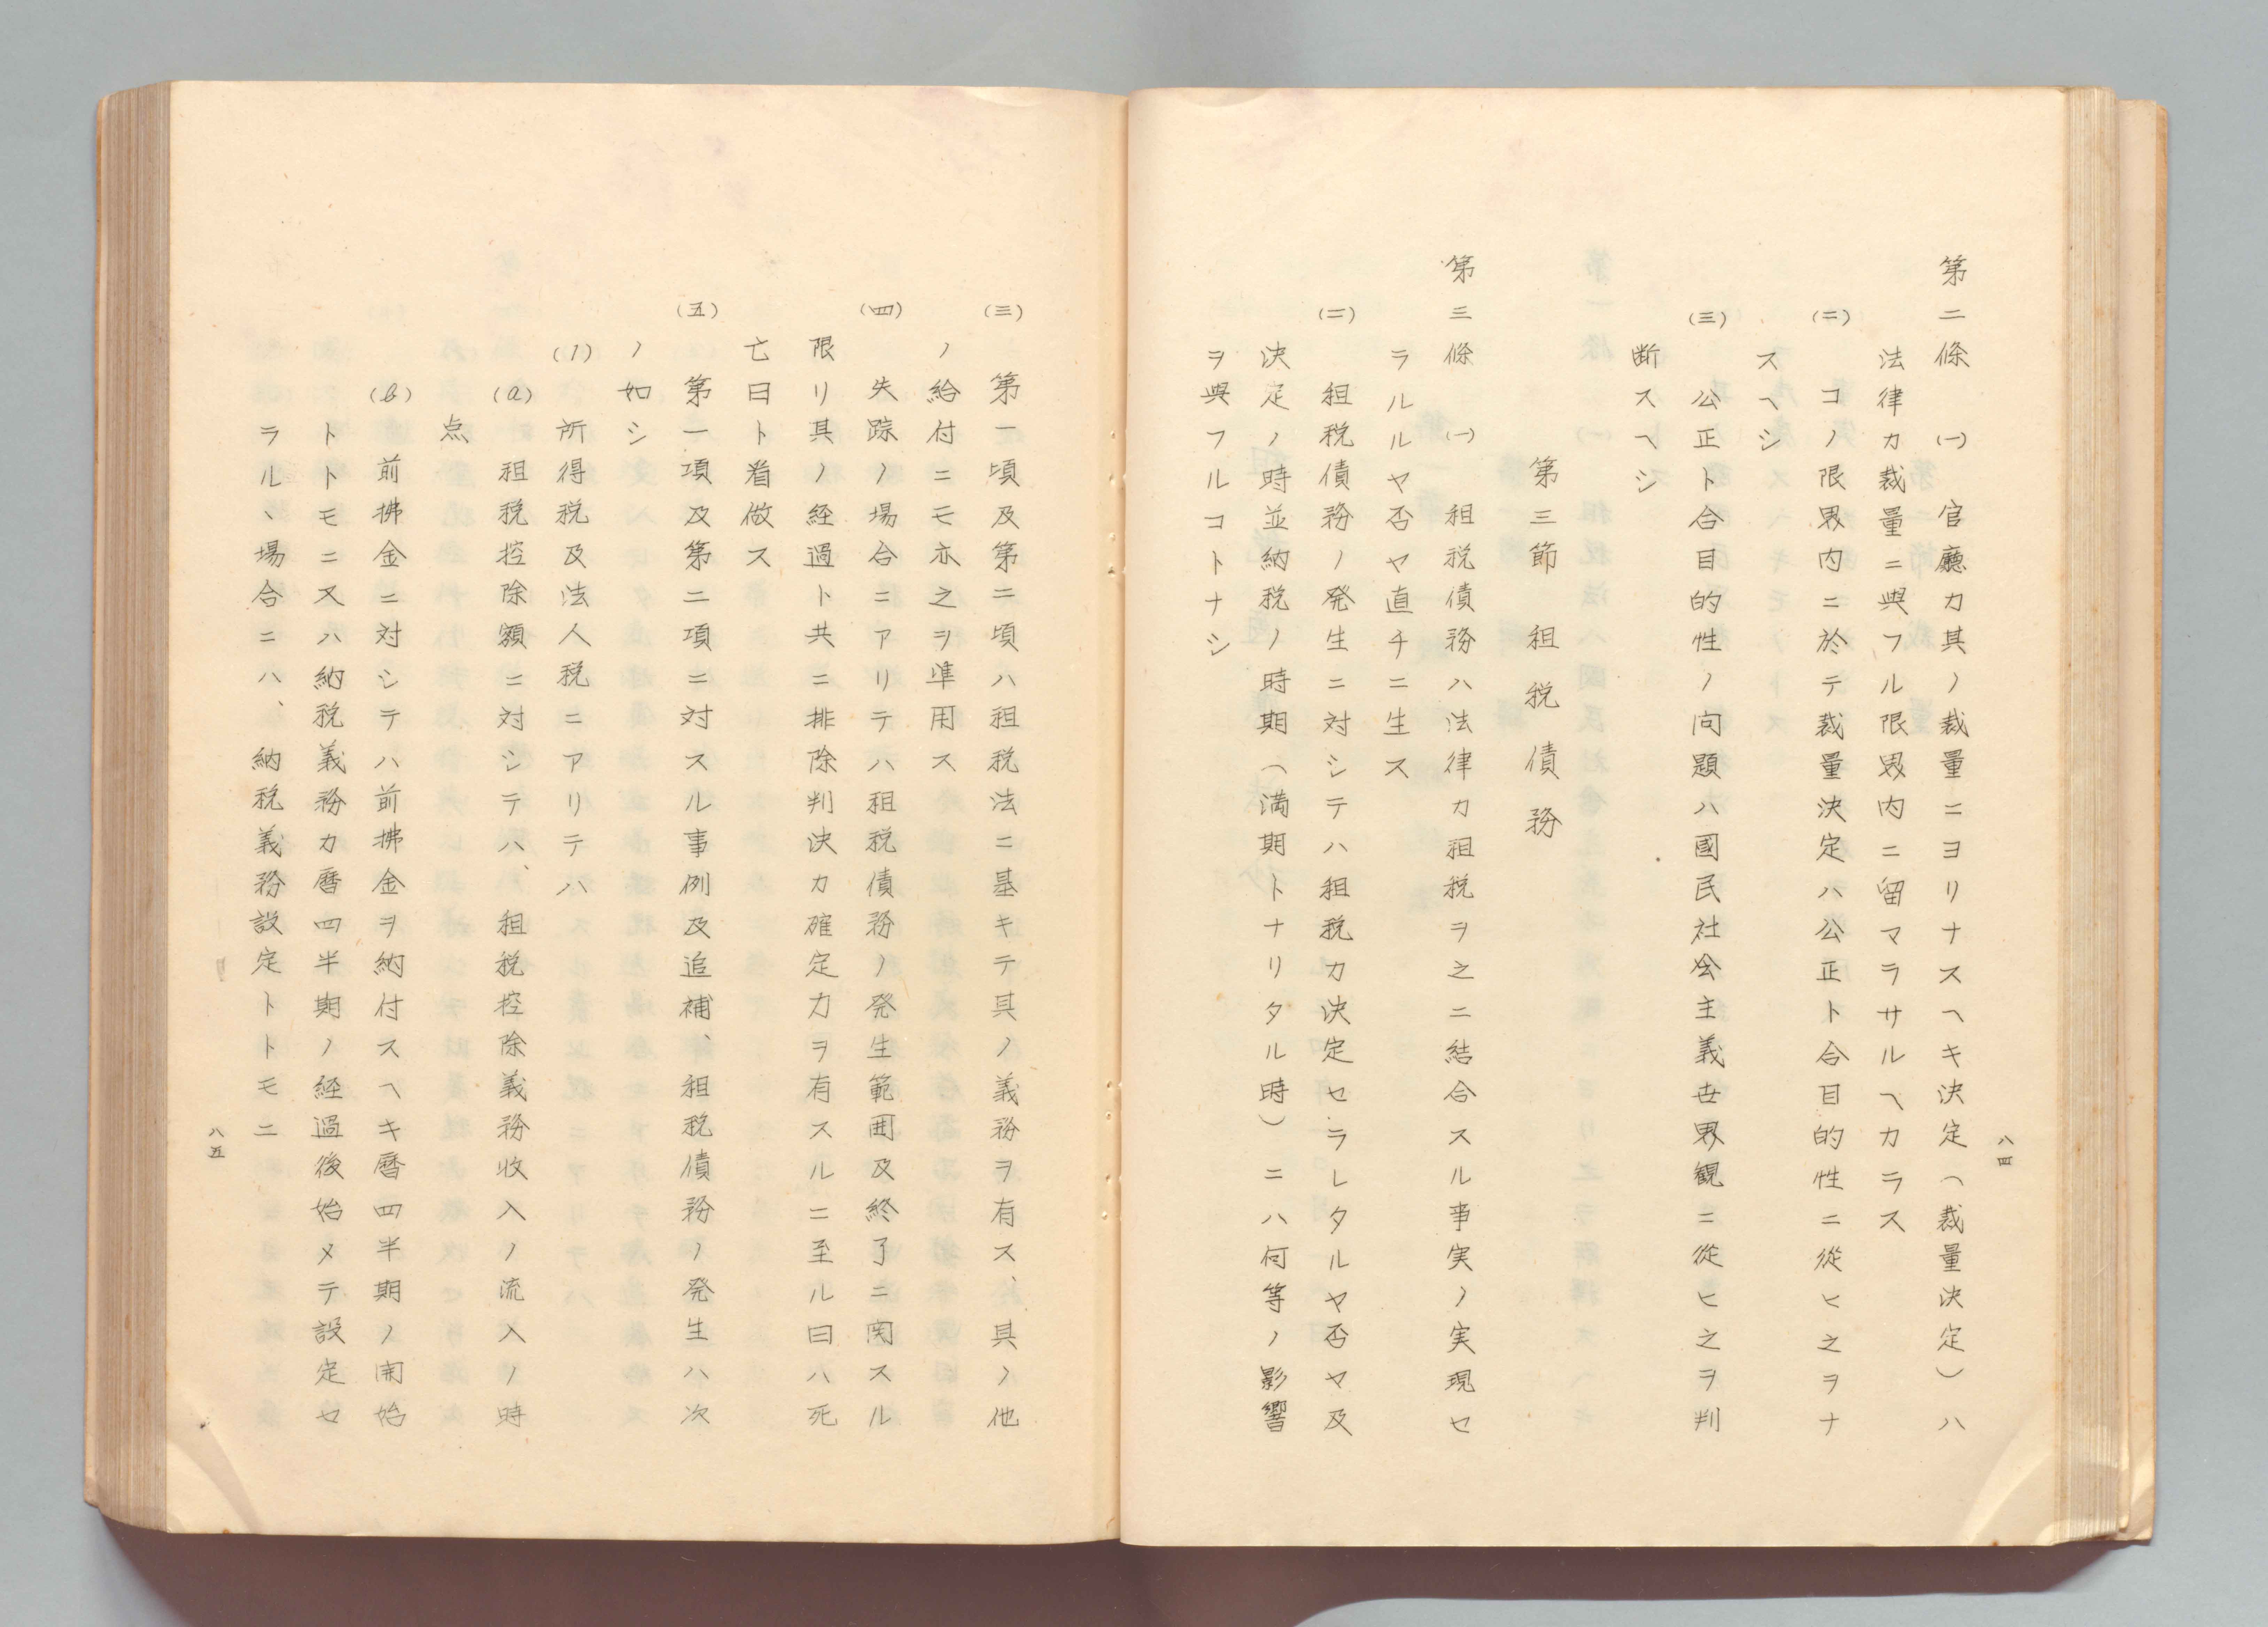 八四
第二條 (一) 官廳カ其ノ裁量ニヨリナスヘキ決定(裁量決定)ハ
法律カ裁量ニ與フル限界内ニ留マラサルヘカラス
(二) コノ限界内ニ於テ裁量決定ハ公正ト合目的性ニ從ヒ之ヲナ
スヘシ
(三) 公正ト合目的性ノ问題ハ國民社会主義世界観ニ從ヒ之ヲ判
断スヘシ
第三節 租税債務
第三條 (一) 租税債務ハ法律カ租税ヲ之ニ結合スル事実ノ実現セ
ラルルヤ否ヤ直チニ生ス
(二) 租税債務ノ発生ニ対シテハ租税カ決定セラレタルヤ否ヤ及
決定ノ時並納税ノ時期(満期トナリタル時)ニハ何等ノ影響
ヲ與フルコトナシ
(三) 第一頃及第二頃ハ租税法ニ基キテ其ノ義務ヲ有ス、其ノ他
ノ給付ニモ亦之ヲ準用ス
(四) 失踪ノ場合ニアリテハ租税債務ノ発生範囲及終了ニ関スル
限リ其ノ経過ト共ニ排除判決カ確定力ヲ有スルニ至ル日ハ死
亡日ト看做ス
(五) 第一項及第二項ニ対スル事例及追補、租税債務ノ発生ハ次
ノ如シ
(1) 所得税及法人税ニアリテハ
(a) 租税控除額ニ対シテハ、租税控除義務收入ノ流入ノ時
点
(b) 前拂金ニ対シテハ前拂金ヲ納付スヘキ暦四半期ノ開始
トトモニ又ハ納税義務カ暦四半期ノ経過後始メテ設定セ
ラルヽ場合ニハ、納税義務設定トトモニ
八五